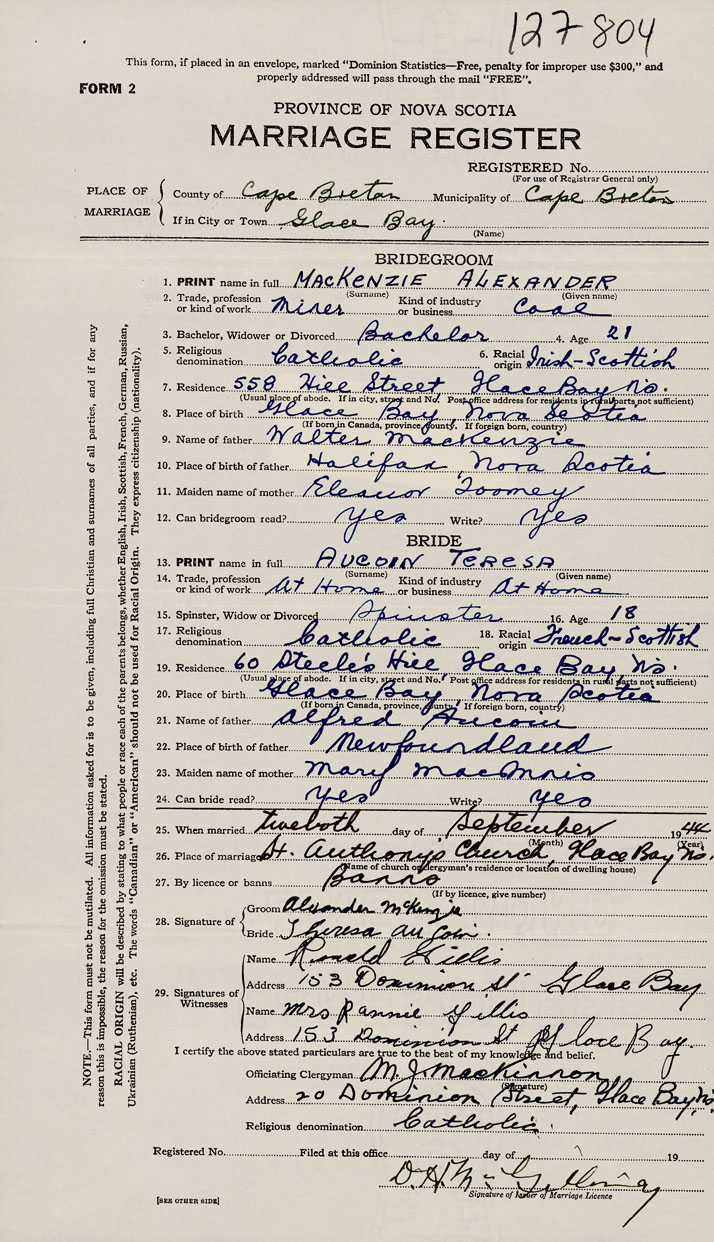 127804
This form, if placed in an envelope, marked "Dominion Statistics—Free, penalty for improper use $300," and
properly addressed will pass through the mail "FREE".
FORM 2
PROVINCE OF NOVA SCOTIA
MARRIAGE REGISTER
REGISTERED No.
(For use of Registrar General only)
PLACE OF MARRIAGE
County of Cape Breton Municipality of Cape Breton
If in City or Town Glace Bay.
(Name)
BRIDEGROOM
1. PRINT name in full MACKENZIE ALEXANDER
(Surname) (Given name)
2. Trade, profession or kind of work Miner Kind of industry or business Coal
3. Bachelor, Widower or Divorced Bachelor 4. Age 21
5. Religious denomination Catholic 6. Racial origin Irish-Scottish
7. Residence 558 Hill Street Glace Bay Ns.
(Usual place of abode. If in city, street and No. Post office address for residents in rural parts not sufficient)
8. Place of birth Glace Bay, Nova Scotia
(If born in Canada, province, county. If foreign born, country)
9. Name of father Walter MacKenzie
10. Place of birth of father Halifax, Nova Scotia
11. Maiden name of mother Eleanor Toomey
12. Can bridegroom read? yes Write? yes
BRIDE
13. PRINT name in full AUCOIN TERESA
(Surname) (Given name)
14. Trade, profession or kind of work At Home Kind of industry or business At Home
15. Spinster, Widow or Divorced Spinster 16. Age 18
17. Religious denomination Catholic 18. Racial origin French-Scottish
19. Residence 60 Steele's Hill, Glace Bay, Ns.
(Usual place of abode. If in city, street and No. Post office address for residents in rural parts not sufficient)
20. Place of birth Glace Bay, Nova Scotia
(If born in Canada, province, county. If foreign born, country)
21. Name of father Alfred Aucoin
22. Place of birth of father Newfoundland
23. Maiden name of mother Mary MacInnis
24. Can bride read? yes Write? yes
25. When married twelfth day of September 1944
(Month) (Year)
26. Place of marriage St. Anthony's Church, Glace Bay Ns.
(Name of church or clergyman's residence or location of dwelling house)
27. By licence or banns Banns
(If by licence, give number)
28. Signature of
Groom Alexander McKenzie
Bride Theresa Aucoin.
29. Signatures of Witnesses
Name Ronald Gillis
Address 153 Dominion St Glace Bay
Name Mrs Rannie Gillis
Address 153 Dominion St Glace Bay.
I certify the above stated particulars are true to the best of my knowledge and belief.
Officiating Clergyman M. J. MacKinnon
(Signature)
Address 20 Dominion Street, Glace Bay, Ns
Religious denomination Catholic.
Registered No. Filed at this office day of 19
Signature of Issuer of Marriage Licence
[SEE OTHER SIDE]
NOTE.—This form must not be mutilated. All information asked for is to be given, including full Christian and surnames of all parties, and if for any
reason this is impossible, the reason for the omission must be stated.
RACIAL ORIGIN will be described by stating to what people or race each of the parents belongs, whether English, Irish, Scottish, French, German, Russian,
Ukrainian (Ruthenian), etc. The words "Canadian" or "American" should not be used for Racial Origin. They express citizenship (nationality).